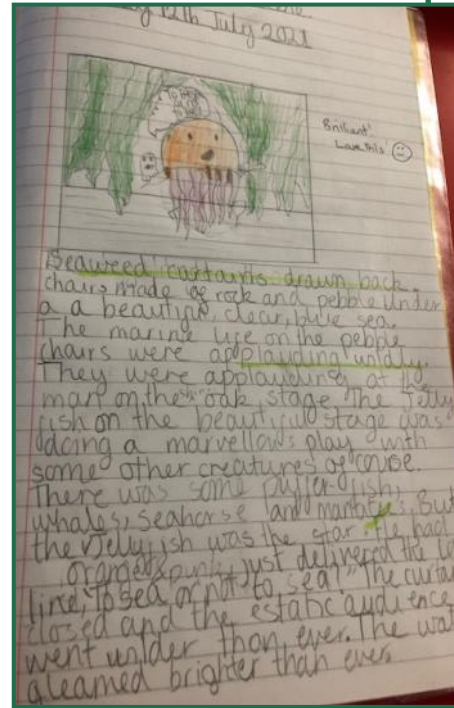 12th July 2021
To
Brilliant!
Love this
Seaweed curtains drawn back.
chairs made of rock and pebble under
a a beautiful, clear, blue sea.
The marine life on the pebble
chairs were applauding wildly.
They were applauding at
man on the oak stage. The Jelly
fish on the beautiful stage was
doing a marvellous play with
some other creatures of course.
There was some puffer-fish,
whales, seahorse and But
the Jellyfish was the star. He had
orange &punk, just delivered the
line, "To sea or not to sea!" The
closed and the estatic audience
went wilder than ever. The
gleamed brighter than ever.